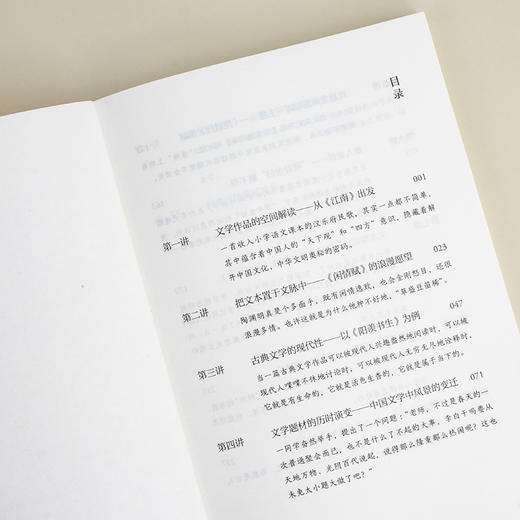 目录
第一讲 文学作品的空间解读——从《江南》出发 001
一首收入小学语文课本的汉乐府民歌，其实一点都不简单，
其中蕴含着中国人的“天下观”和“四方”意识，隐藏着解
开中国文化、中华文明奥秘的密码。
第二讲 把文本置于文脉中——《闲情赋》的浪漫愿望 023
陶渊明真是个多面手，既有闲情逸致，也会金刚怒目，还很
浪漫多情。也许这就是为什么他种不好地，“草盛豆苗稀”。
第三讲 古典文学的现代性——以《阳羡书生》为例 047
当一篇古典文学作品可以被现代人兴趣盎然地阅读时，可以被
现代人喋喋不休地讨论时，可以被现代人无穷无尽地诠释时，
它就是有生命的，它就是活色生香的，它就是属于当下的。
第四讲 文学题材的历时演变——中国文学中风景的变迁 071
一同学奋然举手，提出了一个问题：“老师，不过是春天的一
次普通聚会而已，也不是什么了不起的大事。李白干吗要从
天地万物、光阴百代说起，说得那么隆重那么热闹呢？这也
未免太小题大做了吧？”